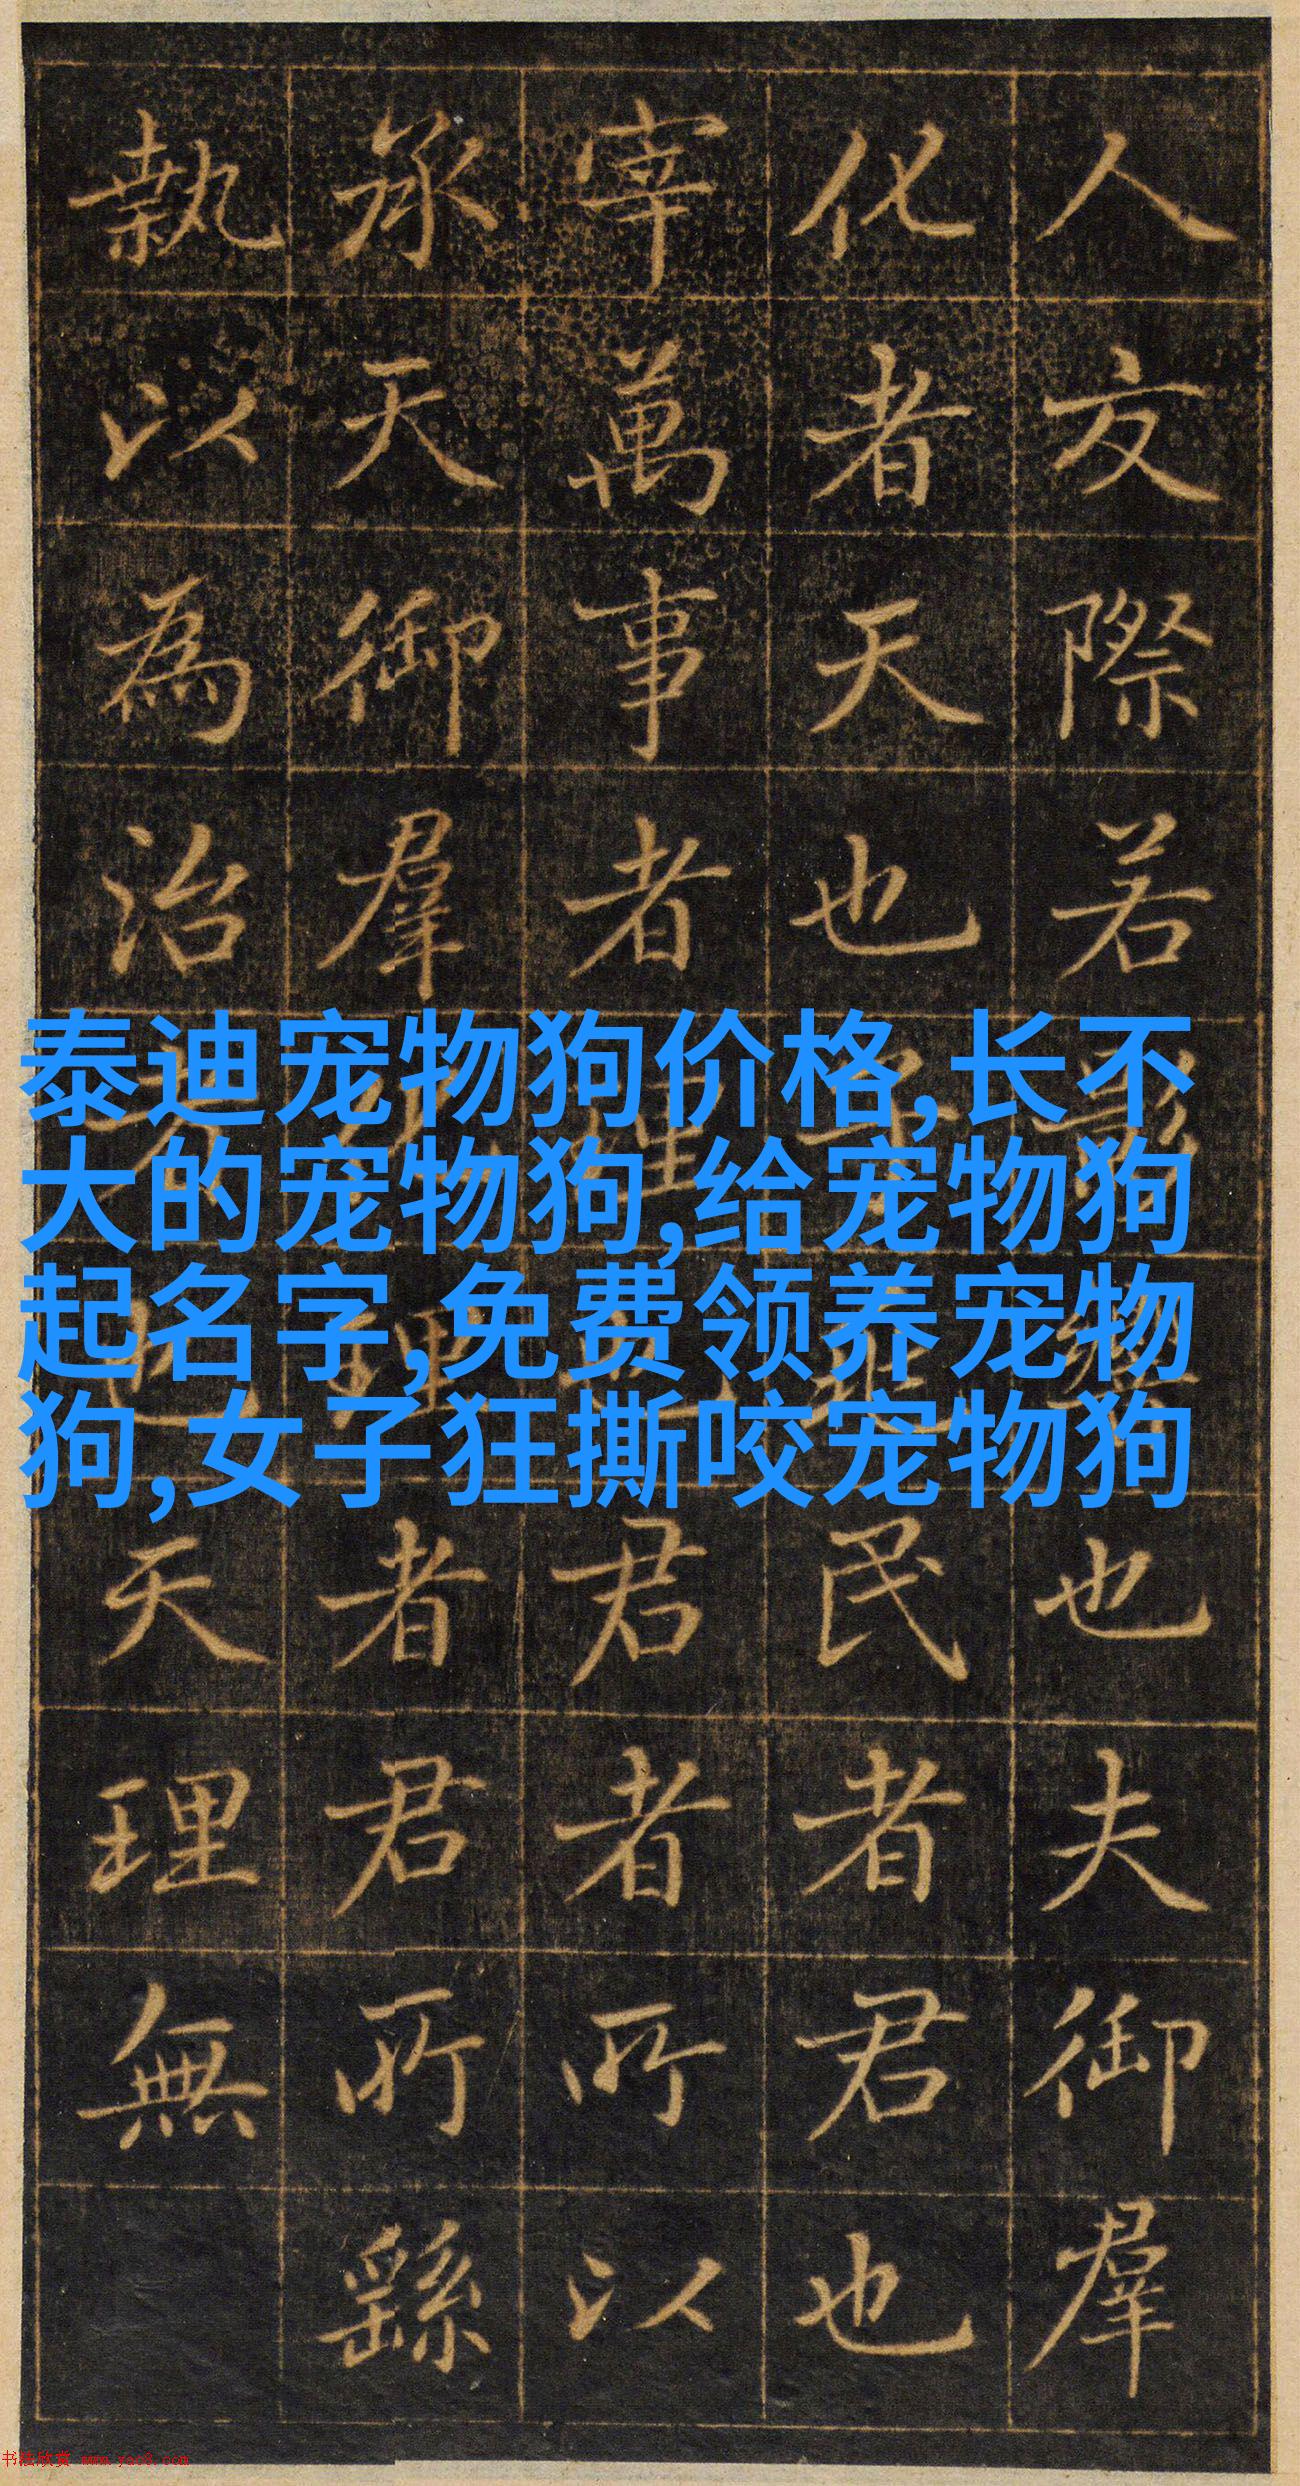 人友際若影也夫御羣
化者天也民者君也
宰萬事者理君者所以
承天御羣理者君所繇
執以為治天理無
泰迪宠物狗价格,长不
大的宠物狗,给宠物狗
起名字,免费领养宠物
狗,女子狂撕咬宠物狗
书法欣赏 www.yac8.com